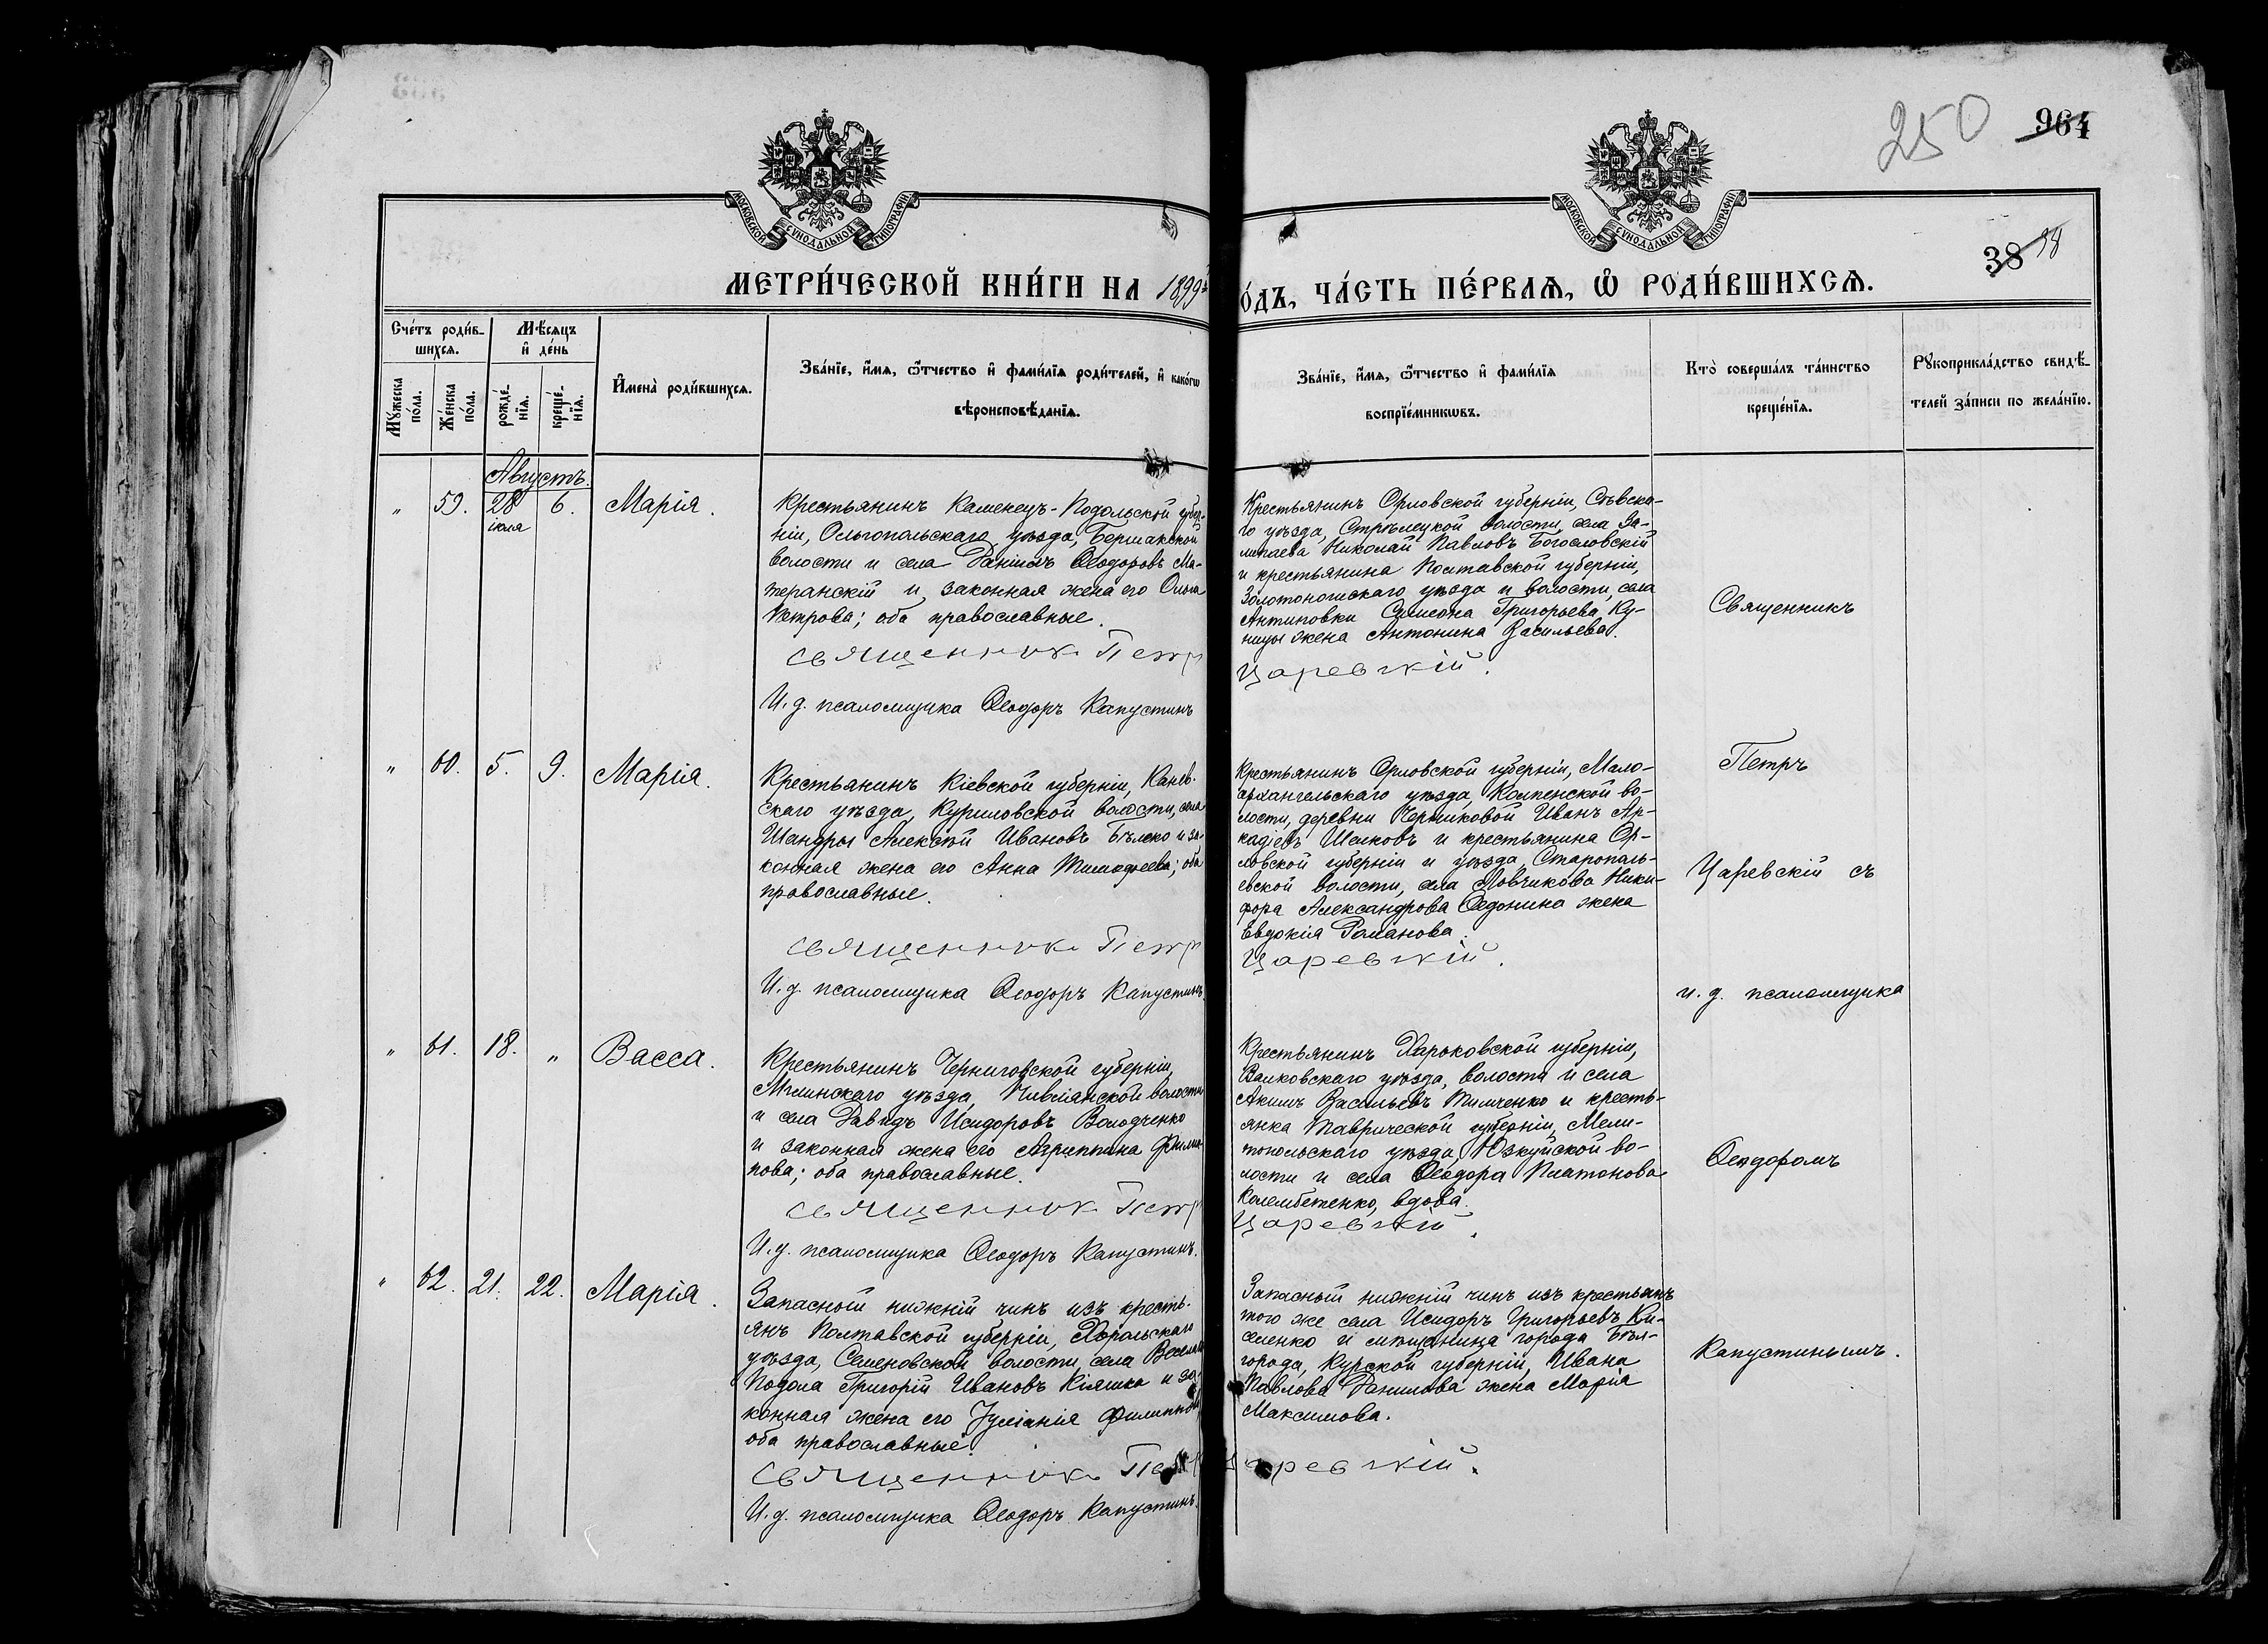 250
964
МОСКОВСКОЙ СУНОДАЛЬНОЙ ТИПОГРАФІИ
МОСКОВСКОЙ СУНОДАЛЬНОЙ ТИПОГРАФІИ
38 98
МЕТРИ́ЧЕСКОЙ КНИ́ГИ НА 1899
О́ДЪ, ЧА́СТЬ ПЕ́РВАѦ, Ѿ РОДИ́ВШИХСѦ.
Сче́тъ роди́в-
шихсѧ.
Мѣ́сѧцъ
и҆ де́нь
Мꙋ́жеска
по́ла.
Же́нска
по́ла.
рожде́-
нїѧ.
креще́-
нїѧ.
И҆мена̀ роди́вшихсѧ.
Зва́нїе, и҆́мѧ, ѻ҆́тчество и҆ фами́лїѧ роди́телей, и҆ како́гѡ
вѣроисповѣ́данїѧ.
Зва́нїе, и҆́мѧ, ѻ҆́тчество и҆ фами́лїѧ
воспрїе́мникѡвъ.
Кто̀ соверша́лъ та́инство
креще́нїѧ.
Рꙋкоприкла́дство свидѣ́-
телей за́писи по жела́нїю.
Августъ.
" 59. 28 6. Марія.
іюля
Крестьянинъ Каменецъ-Подольской губер-
ніи, Ольгопольскаго уѣзда, Бершадской
волости и села Даніилъ Ѳеодоровъ Ма-
теранскій и законная жена его Ольга
Петрова; оба православные.
Священникъ Петр
И. д. псаломщика Ѳеодоръ Капустинъ
Крестьянинъ Орловской губерніи, Сѣвска-
го уѣзда, Стрѣлецкой волости, села За-
Николай Павловъ Богословскій
и крестьянина Полтавской губерніи,
Золотоношскаго уѣзда и волости, села
Антиповки Симеона Григорьева Ку-
ницы жена Антонина Васильева.
Царевскій.
Священникъ
" 60. 5. 9. Марія.
Крестьянинъ Кіевской губерніи, Канев-
скаго уѣзда, Куриловской волости, села
Шандры Алексѣй Ивановъ Бѣлеко и за-
конная жена его Анна Тимофеева; оба
православные.
Священникъ Петр
И. д. псаломщика Ѳеодоръ Капустинъ.
Крестьянинъ Орловской губерніи, Мало-
архангельскаго уѣзда, Колпенской во-
лости, деревни Черниковой Иванъ Ар-
кадіевъ Шелковъ и крестьянина Ор-
ловской губерніи и уѣзда, Старополь-
евской волости, села Ловчикова Ники-
фора Александрова Ѳедонина жена
Евдокія Романова.
Царевскій.
Петръ
Царевскій съ
и. д. псаломщика
" 61. 18. " Васса.
Крестьянинъ Черниговской губерніи,
Мглинскаго уѣзда, волости
и села Давидъ Исидоровъ Володченко
и законная жена его Агриппина Филип-
пова; оба православные.
Священникъ Петр
И. д. псаломщика Ѳеодоръ Капустинъ.
Крестьянинъ Харьковской губерніи,
Валковскаго уѣзда, волости и села
Акимъ Васильевъ Тимченко и кресть-
янка Таврической губерніи, Мели-
топольскаго уѣзда, Юзкуйской во-
лости и села Ѳеодора Платонова
Колембетенко, вдова.
Царевскій.
Ѳеодоромъ
" 62. 21. 22. Марія.
Запасной нижній чинъ изъ кресть-
янъ Полтавской губерніи, Хорольскаго
уѣзда, Семеновской волости, села Веселаго
Подола Григорій Ивановъ Кіяшка и за-
конная жена его Іуліанія Филиппов
оба православные.
Священникъ Петр
И. д. псаломщика Ѳеодоръ Капустинъ.
Запасный нижній чинъ изъ крестьянъ
того же села Исидоръ Григорьевъ Ки-
селенко и мѣщанина города Бѣл-
города, Курской губерніи, Ивана
Павлова Данилова жена Марія
Максимова.
Царевскій.
Капустинымъ.